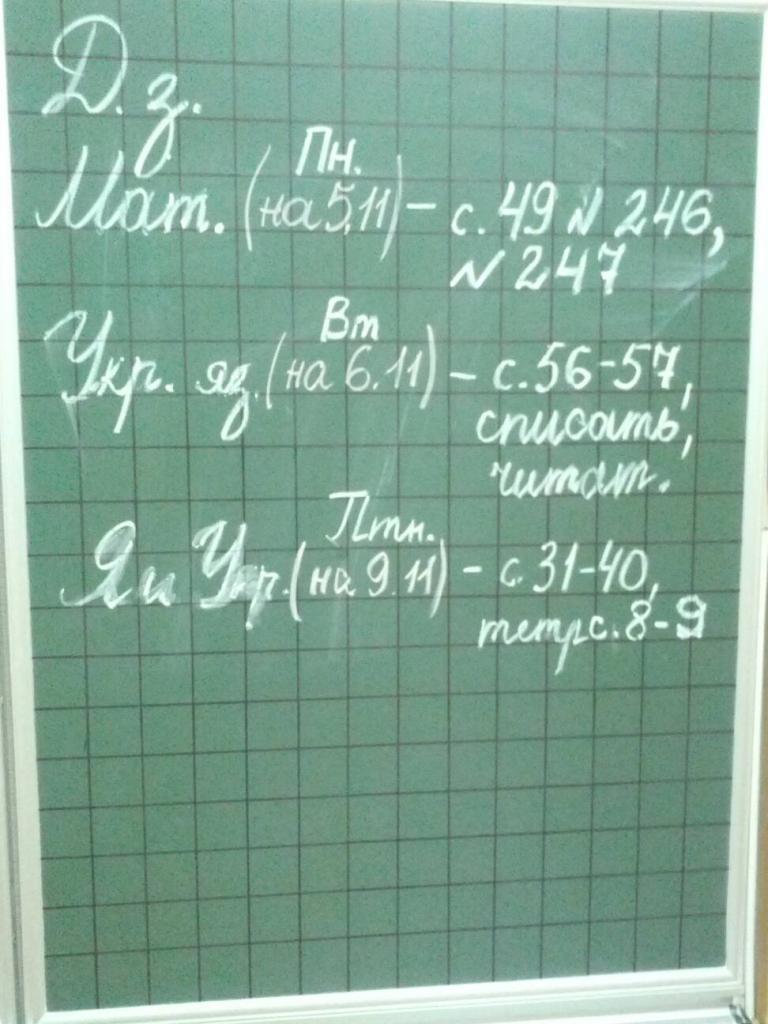 Д.з.
Пн.
Мат. (на 5.11) - с. 49 № 246,
№ 247
Вт
Укр. яз. (на 6.11) - с. 56-57,
списать,
читат.
Птн.
Я и Укр. (на 9.11) - с. 31-40,
тетр с. 8-9